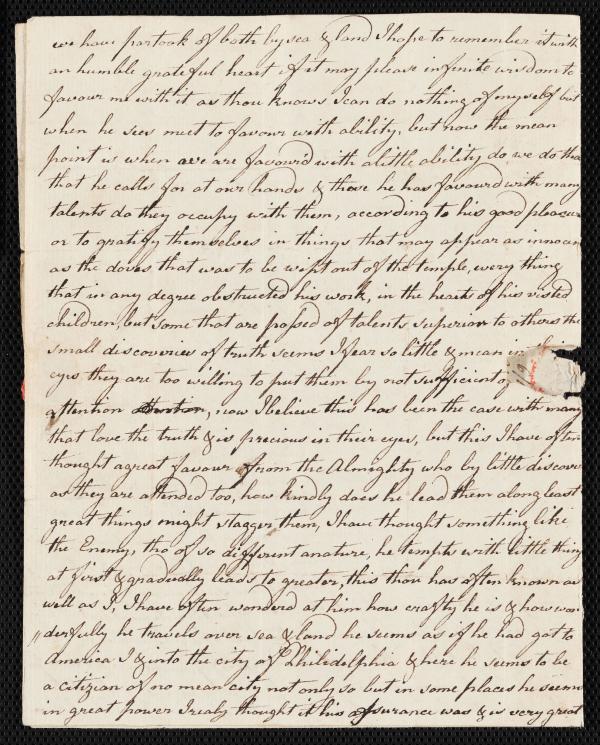 we have partook of both by sea & land I hope to remember it with
an humble grateful heart if it may please infinite wisdom to
favour me with it as thou knows I can do nothing of myself but
when he sees meet to favour with ability, but now the mean
point is when we are favour'd with a little ability do we do tha
that he calls for at our hands & those he has favourd with many
talents do they occupy with them, according to his good pleasure
or to gratify themselves in things that may appear as innocen
as the doves that was to be wipt out of the temple, every thing
that in any degree obstructed his work, in the hearts of his visited
children, but some that are possed of talents superior to others the
small discoveries of truth seems I fear so little & mean in
eyes they are too willing to put them by not sufficient
attention, now I believe this has been the case with many
that love the truth & is precious in their eyes, but this I have often
thought a great favour from the Almighty who by little discove
as they are attended too, how kindly does he lead them along least
great things might stagger them, I have thought something like
the Enemy, tho of so different a nature, he tempts with little thing
at first & gradually leads to greater, this thou has often known as
well as I, I have often wonderd at him how crafty he is & how won
derfully he travels over sea & land he seems as if he had got to
America I & into the city of Philidelphia & here he seems to be
a citizian of no mean city not only so but in some places he seems
in great power I realy thought it his assurance was & is very great